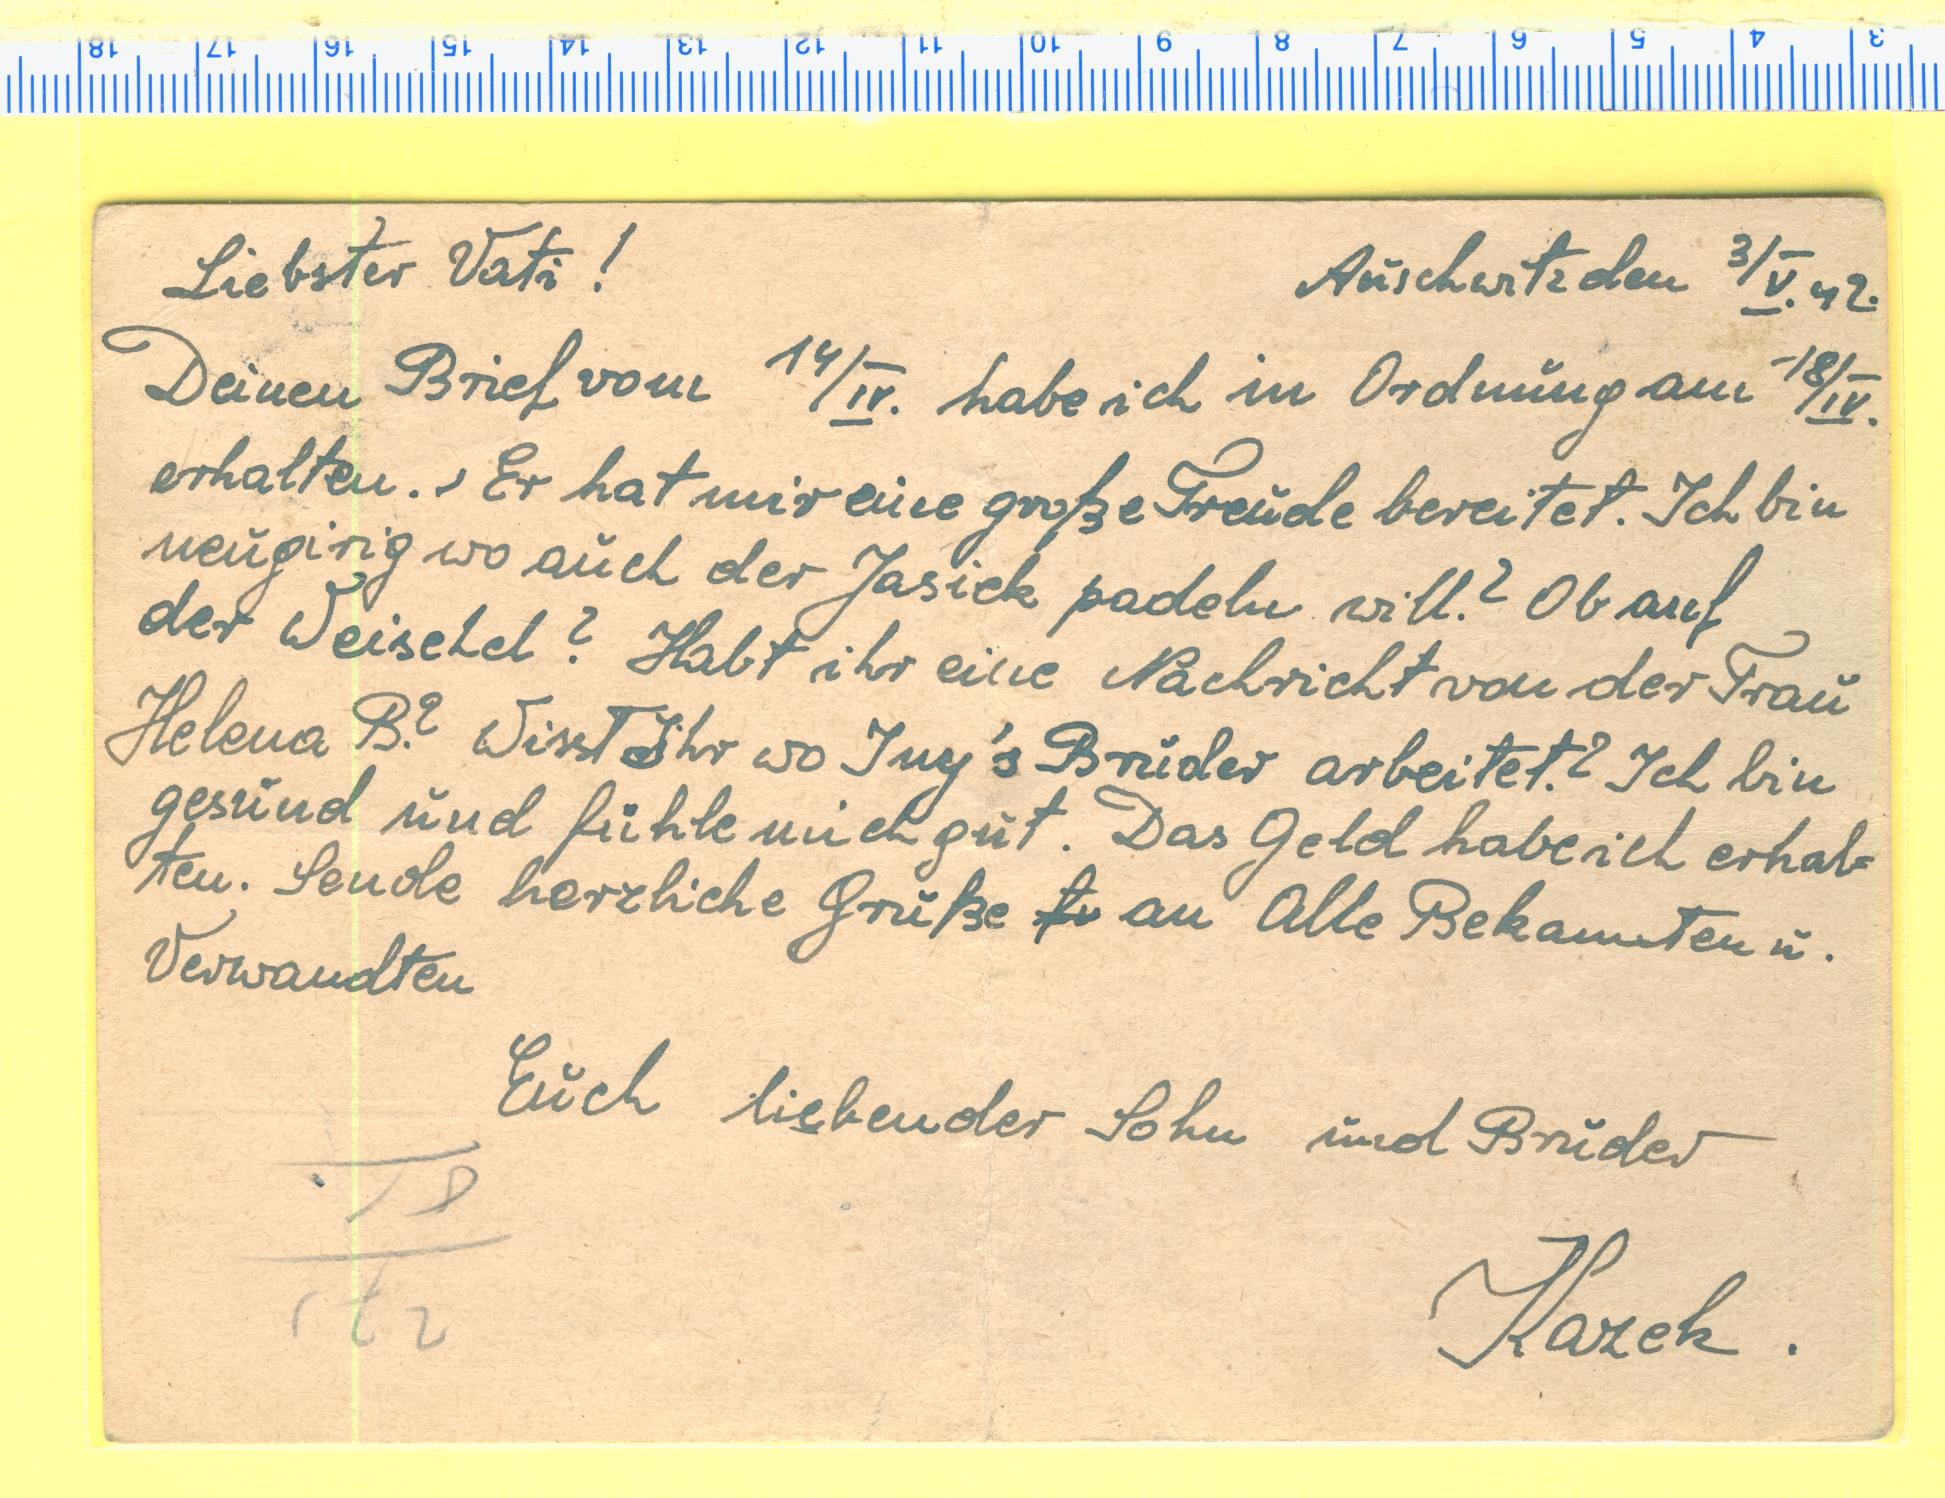 18 17 16 15 14 13 12 11 10 9 8 7 6 5 4 3
Liebster Vati! Auschwitz den 3/V. 42.
Deinen Brief vom 14/IV. habe ich in Ordnung am 18/IV.
erhalten. Er hat mir eine große Freude bereitet. Ich bin
neugirig wo auch der Jasiek padeln will.? Ob auf
der Weischel? Habt ihr eine Nachricht von der Frau
Helena B.? Wisst Ihr wo Iny's Bruder arbeitet.? Ich bin
gesund und fühle mich gut. Das Geld habe ich erhal=
ten. Sende herzliche Grüße an Alle Bekannten u.
Verwandten
Euch liebender Sohn und Bruder
Kazek.